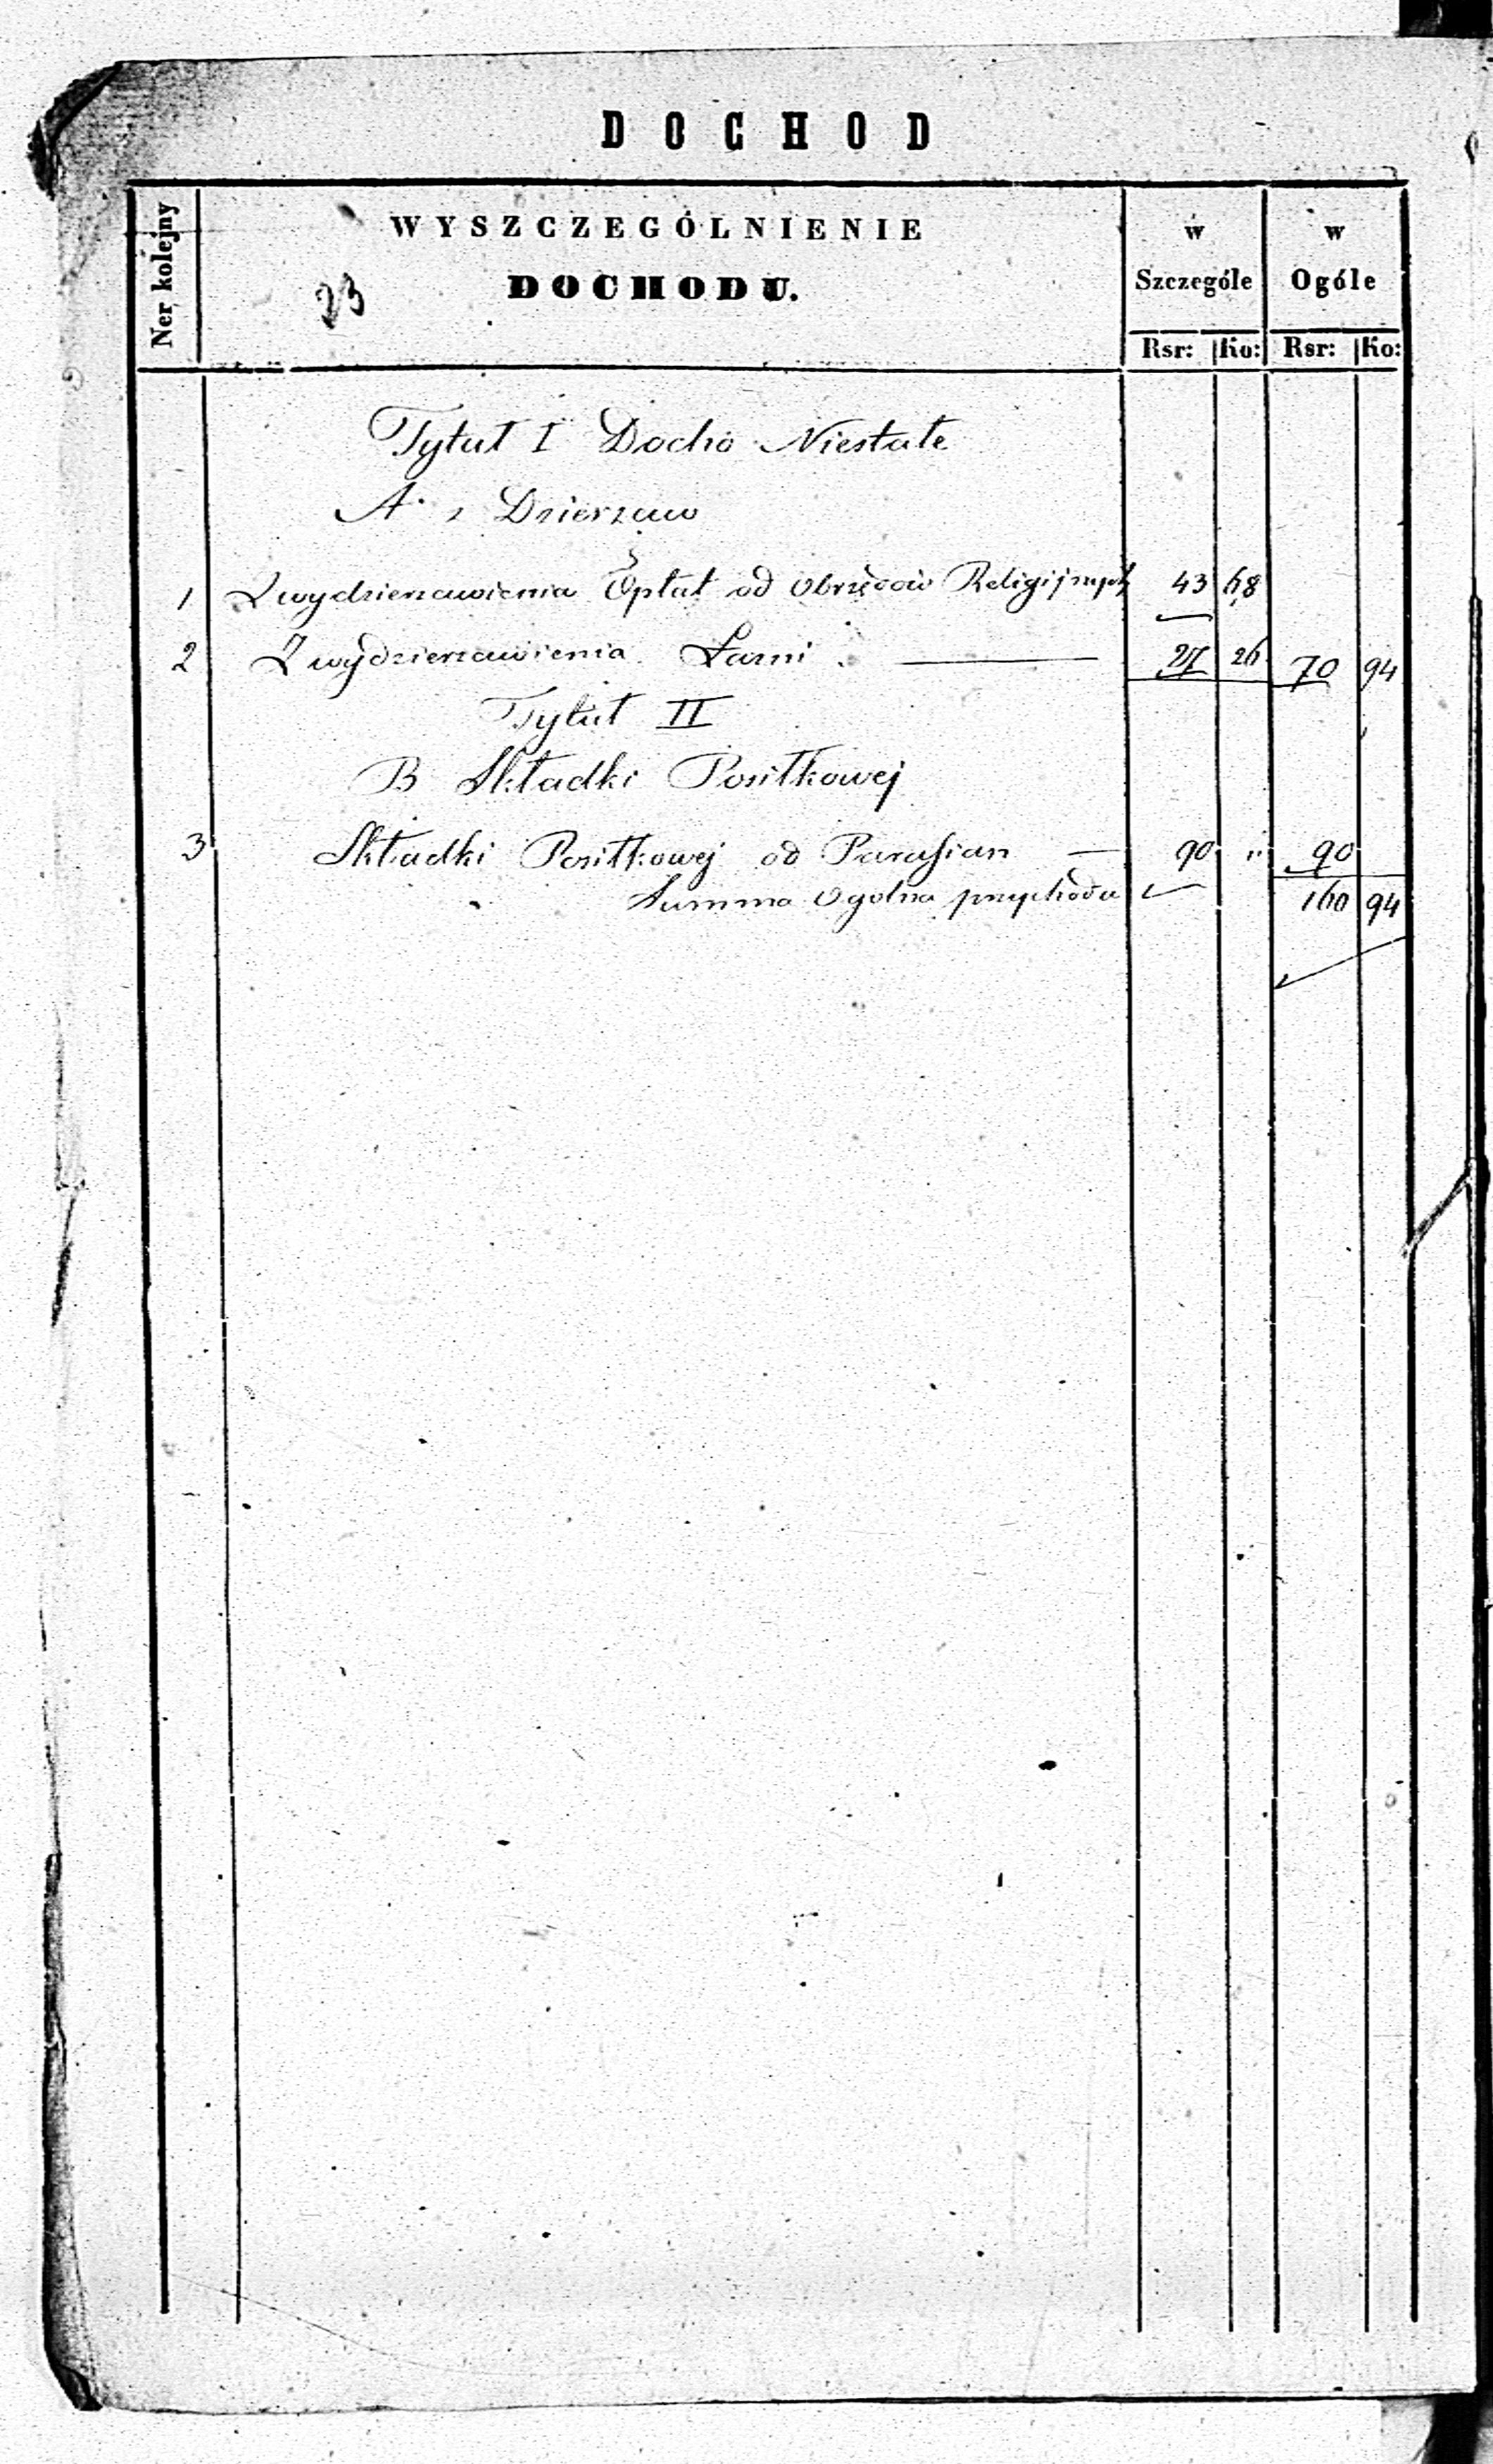 DOCHOD
Ner kolejny
WYSZCZEGÓLNIENIE
DOCHODU.
23
w Szczególe
w Ogóle
Rsr: Ko: Rsr: Ko:
Tytuł I Docho Niestałe
A. z Dzierzaw
1 Z wydzierzawienia Opłat od Obrzędów Religijnych 43 68
2 Z wydzierzawienia Łazni 27 26 70 94
Tytuł II
B Składki Posiłkowej
3 Składki Posiłkowej od Parafian — 90 " 90
Summa Ogolna przychodu 160 94